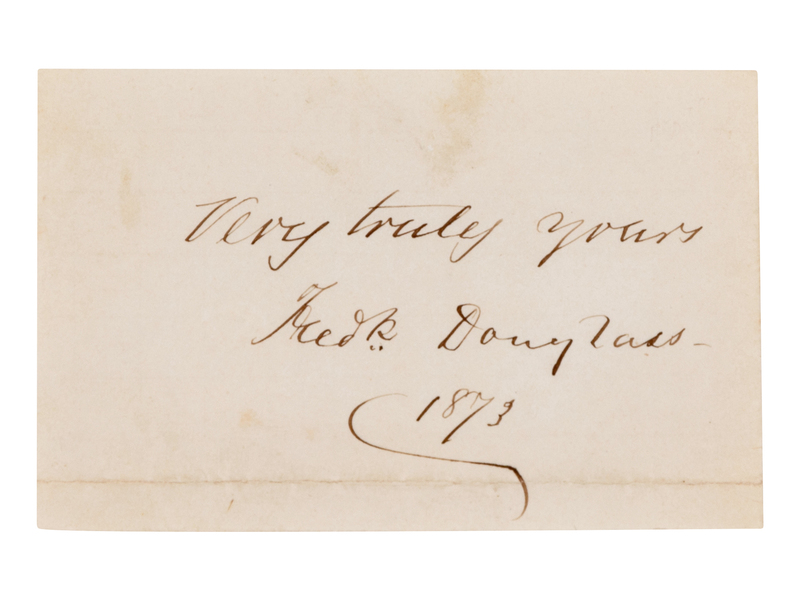 Very truly yours
Fredk. Douglass -
1873